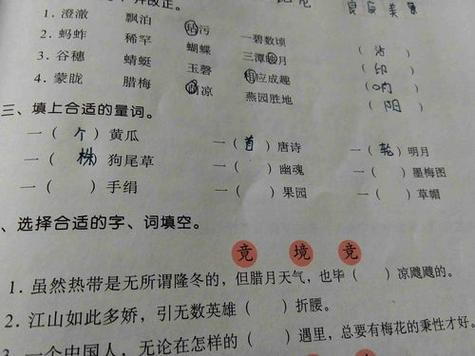 1. 澄澈 飘泊 沾污 一碧数顷 (洁)
2. 蚂蚱 稀罕 蝴蝶 三潭映月 (印)
3. 谷穗 蜻蜓 玉磬 相应成趣
4. 蒙眬 腊梅 凉 燕园胜地 (阳)
三、填上合适的量词。
一(个)黄瓜 一(首)唐诗 一(轮)明月
一(株)狗尾草 一( )幽魂 一( )墨梅图
一( )手绢 一( )果园 一( )草帽
、选择合适的字、词填空。
竟 境 竞
1. 虽然热带是无所谓隆冬的，但腊月天气，也毕( )凉飕飕的。
2. 江山如此多娇，引无数英雄( )折腰。
3. 一个中国人，无论在怎样的( )遇里，总要有梅花的秉性才好。